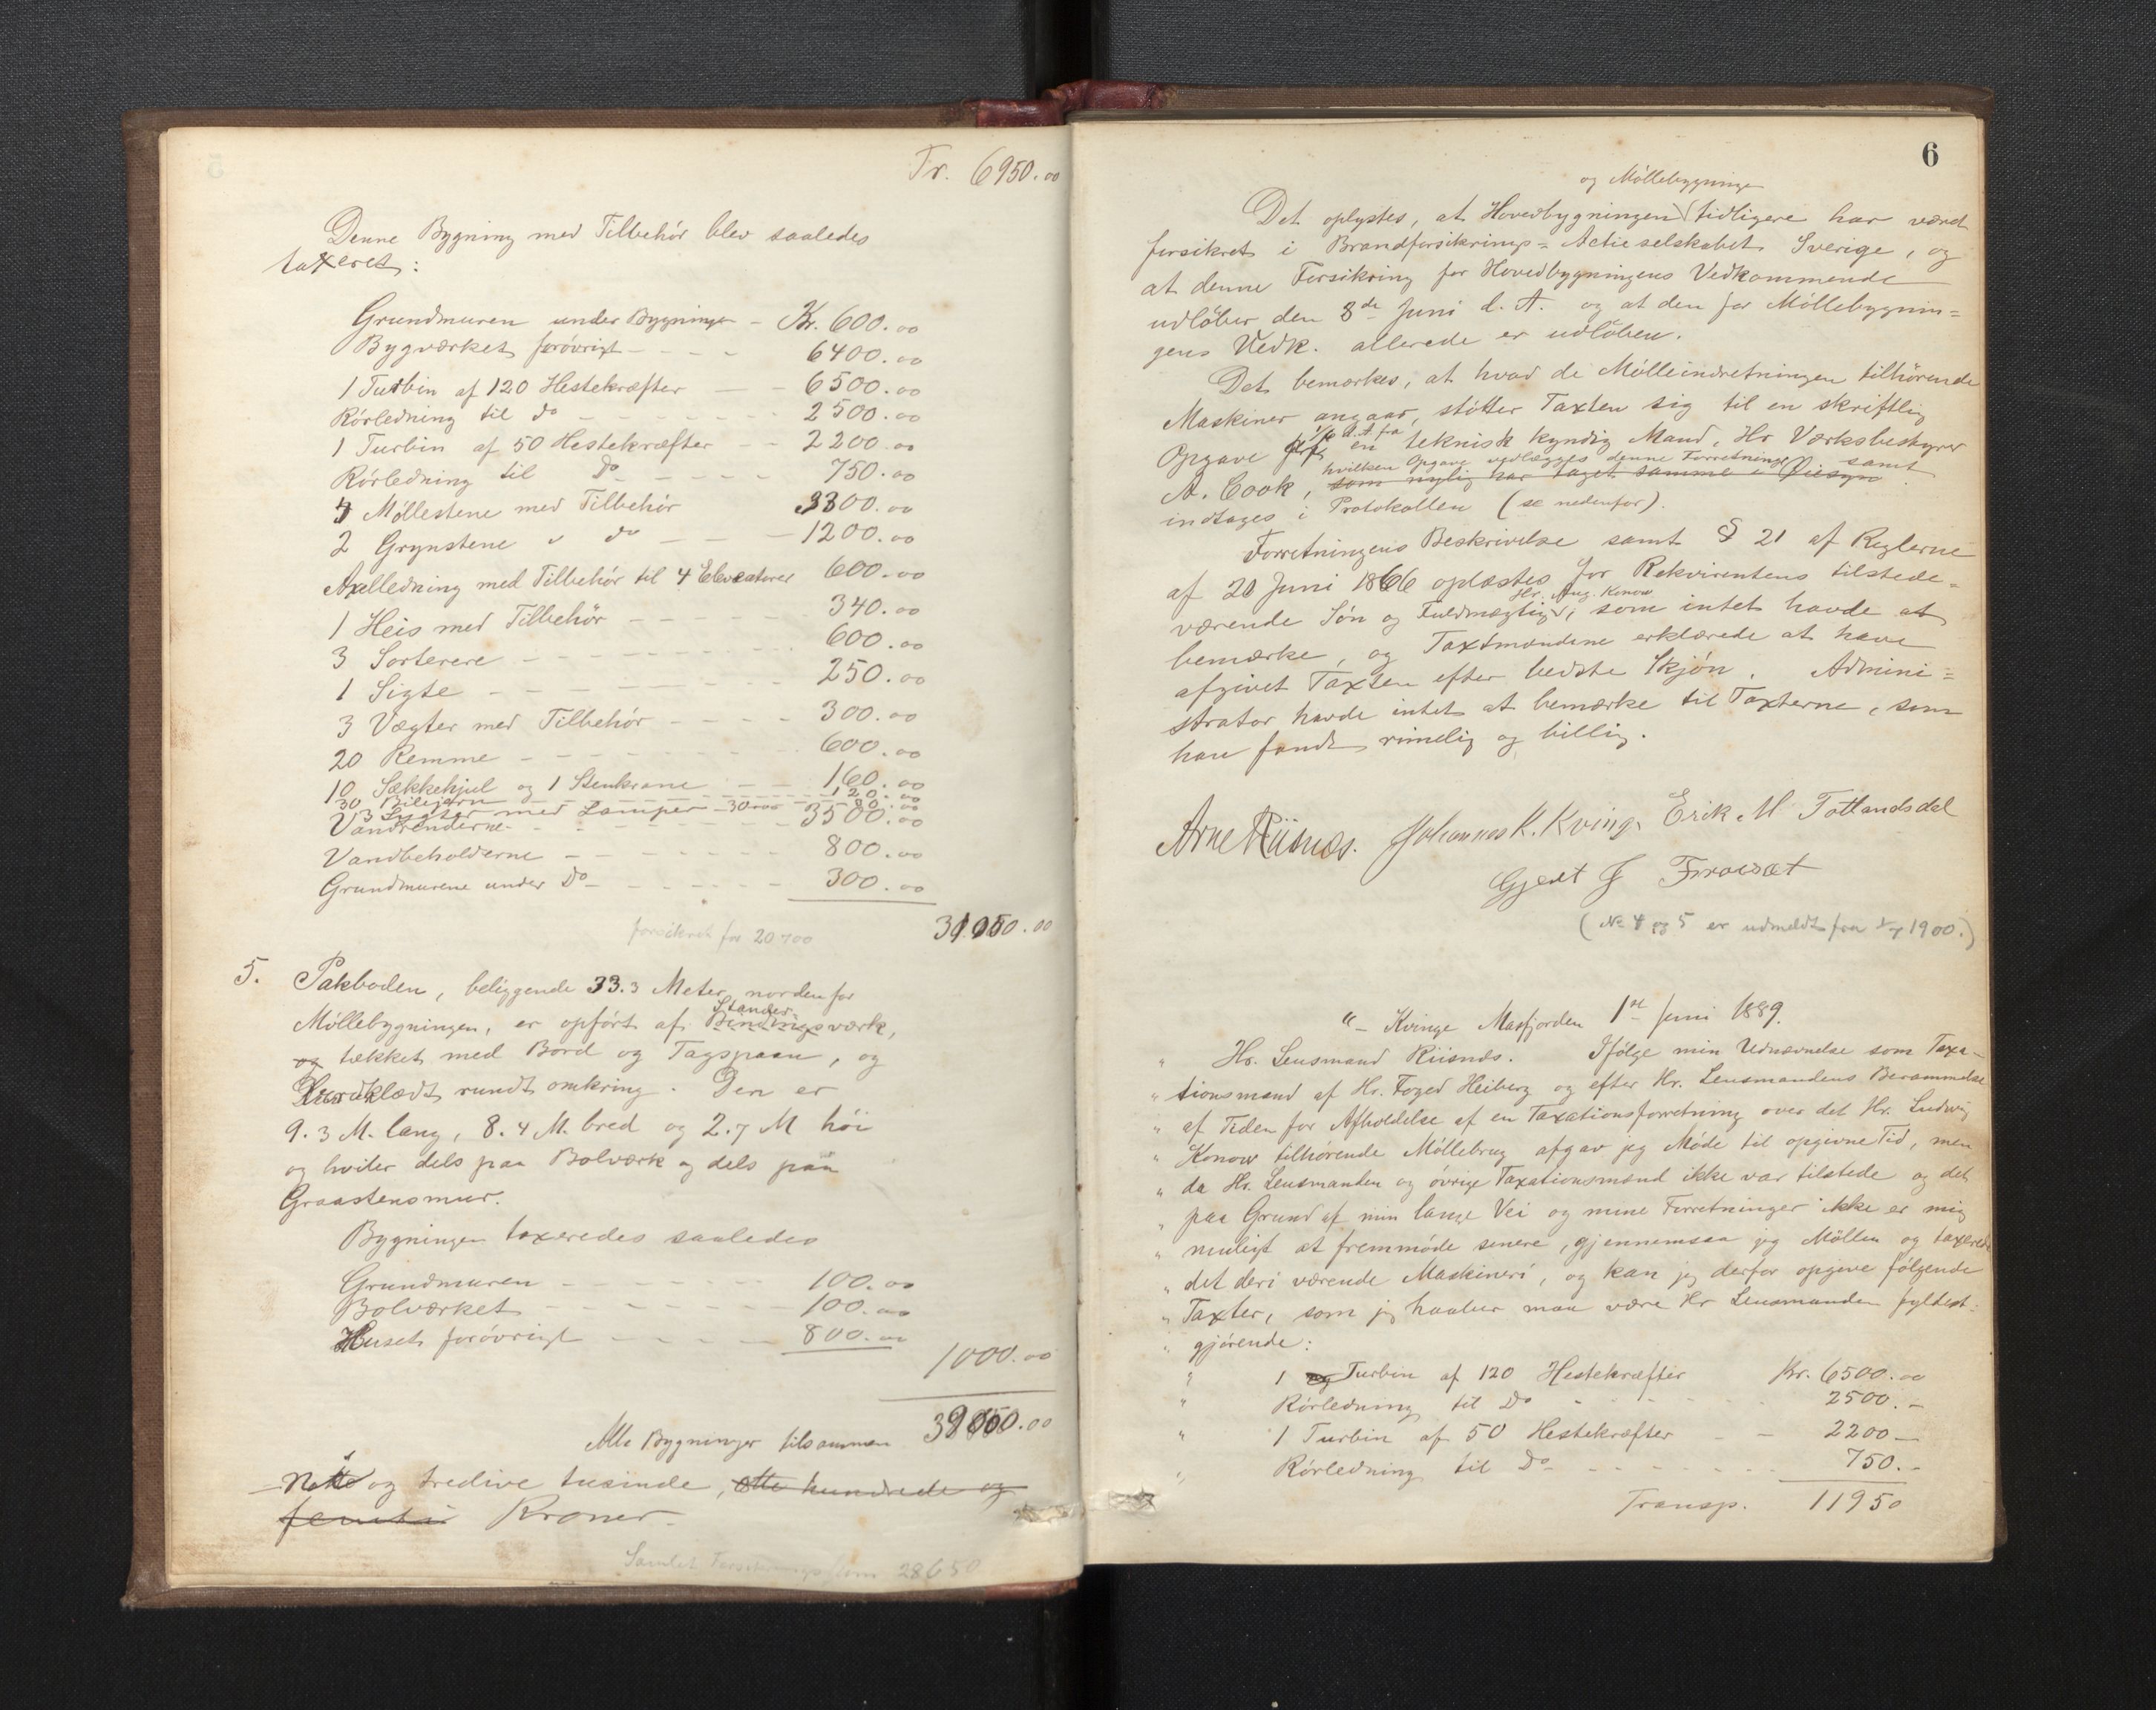 Tr. 6950.00
Denne Bygning med Tilbehör blev saaledes
taxeret:
Grundmuren under Bygningen - Kr. 600.00
Bygværket forövrigt - - - - 6400.00
1 Turbin af 120 Hestekræfter - - 6500.00
Rörledning til do - - - - - - - 2500.00
1 Turbin af 50 Hestekræfter - - 2200.00
Rörledning til Do - - - - - 750.00
4 Möllestene med Tilbehör 3300.00
2 Grynstene " do - - - 1200.00
Axelledning med Tilbehör til 4 Elevatorer 600.00
1 Heis med Tilbehör - - - - - 340.00
3 Sorterere - - - - - - - - - - 600.00
1 Sigte - - - - - - - - - 250.00
3 Vægter med Tilbehör - - - - 300.00
20 Remme - - - - - - - - - 600.00
10 Sækkehjul og 1 Stenkrane - - 160.00
30 Bilejern - - - - - - - - 120.00
3 Lygter med Lamper - 30.00 - 80.00
Vandrenderne - - - - - - - - 3500.00
Vandbeholderne - - - - - - - 800.00
Grundmurene under Do - - - - - - 300.00
forsikret for 20700
5. Pakboden, beliggende 33.3 Meter nordenfor
Stander
Möllebygningen, er opfört af Bindingsværk,
og tækket med Bord og Tagspaan, og
Bordklædt rundt omkring. Den er
9.3 M. lang, 8.4 M. bred og 2.7 M höi
og hviler dels paa Bolværk og dels paa
Graastensmur.
Bygningen taxeredes saaledes
Grundmuren - - - - - - - 100.00
Bolværket - - - - - - - - 100.00
Huset forövrigt - - - - - 800.00
1000.00
Alle Bygninger tilsammen
og tredive tusinde, otte hundrede og
femti Kroner.
Samlet Forsikringssum 28650
6
og Möllebygningen
Det oplystes, at Hovedbygningen tidligere har været
forsikret i Brandforsikrings=Actieselskabet Sverige, og
at denne Forsikring for Hovedbygningens Vedkommende
udlöber den 8de Juni d. A. og at den for Möllebygnin=
gens Vedk. allerede er udlöben.
Det bemærkes, at hvad de Mölleindretningen tilhörende
Maskiner angaar, stötter Taxten sig til en skriftlig
1/6 d. A. fra
Opgave af en teknisk kyndig Mand, Hr Værksbestyrer
hvilken Opgave vedlægges denne Forretning samt
A. Cook, som nylig har taget samme i Öiesyn.
indtages i Protokollen (se nedenfor).
Forretningens Beskrivelse samt § 21 af Reglerne
af 20 Juni 1866 oplæstes for Rekvirentens tilstede=
Hr. Aug. Konow
værende Sön og Fuldmægtig, som intet havde at
bemærke, og Taxtmændene erklærede at have
afgivet Taxten efter bedste Skjön. Admini=
strator havde intet at bemærke til Taxterne, som
han fandt rimelig og billig.
Arne Riisnæs. Johannes K. Kvinge Erik M Totlandsdal
Gjert J
(No 4 og 5 er udmeldt fra 1/7 1900.)
"- Kvinge Masfjorden 1ste Juni 1889.
" Hr. Lensmand Riisnæs. Ifölge min Udnævnelse som Taxa-
" tionsmand af Hr. Foged Heiberg og efter Hr. Lensmandens Berammelse
" af Tiden for Afholdelse af en Taxationsforretning over det Hr. Ludwig
" Konow tilhörende Möllebrug afgav jeg Möde til opgivne Tid, men
" da Hr. Lensmanden og övrige Taxationsmænd ikke var tilstede og det
" paa Grund af min lange Vei og mine Forretninger ikke er mig
" muligt at fremmöde senere, gjennemsaa jeg Möllen og taxerede
" det deri værende Maskineri, og kan jeg derfor opgive fölgende
" Taxter, som jeg haaber maa være Hr Lensmanden fyldest=
" gjörende:
" 1 Turbin af 120 Hestekræfter Kr. 6500.00
" Rörledning til Do - - - - 2500.-
" 1 Turbin af 50 Hestekræfter - - 2200-
" Rörledning til Do - - - - - - 750.-
Transp. 11950